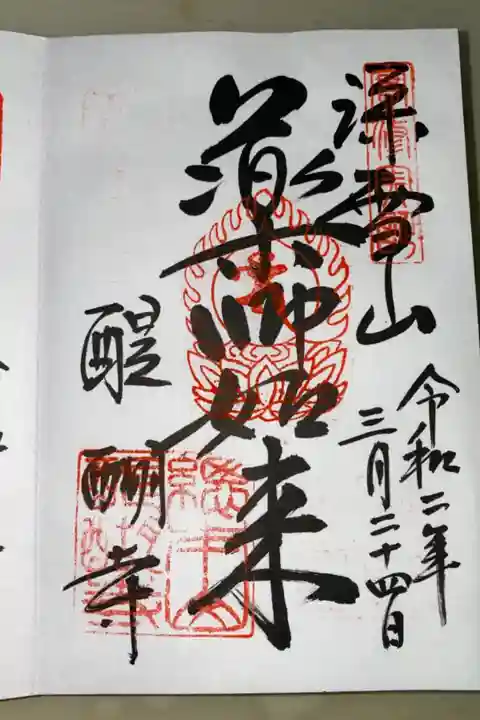 深雪山
令和二年
三月二十四日
薬師如来
醍醐寺